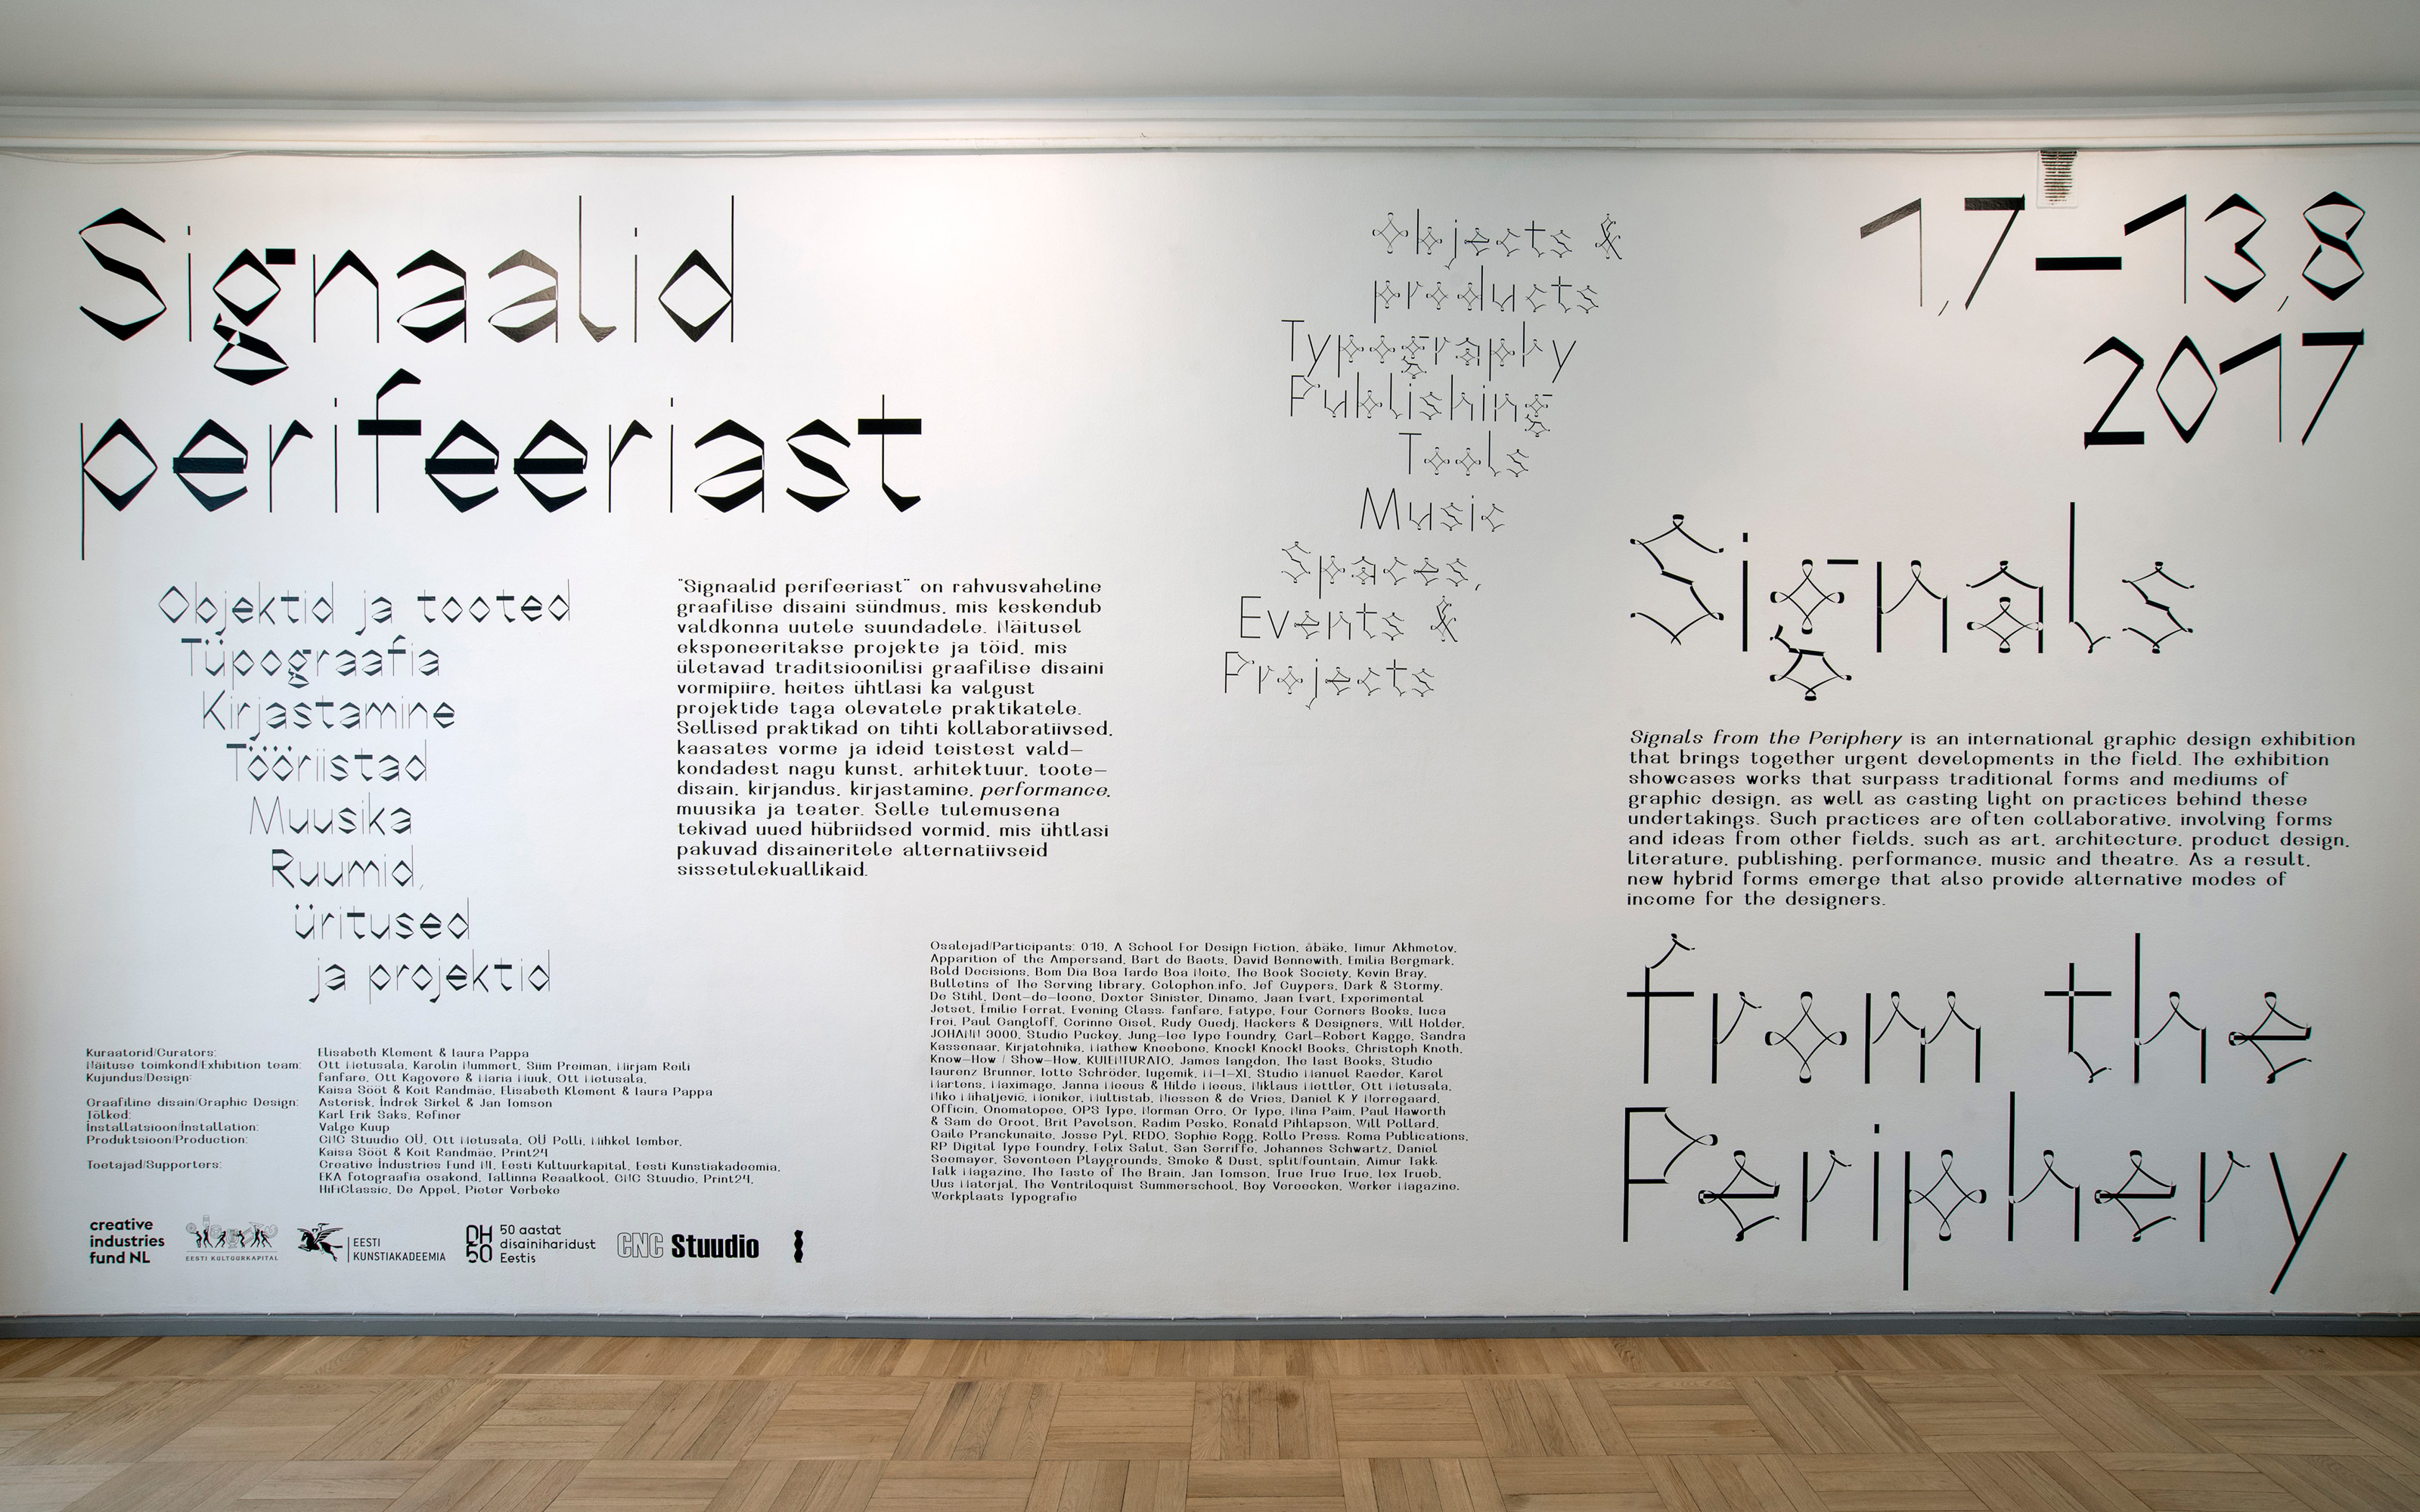 Signaalid
perifeeriast
Objektid ja tooted
Tüpograafia
Kirjastamine
Tööriistad
Muusika
Ruumid,
üritused
ja projektid
"Signaalid perifeeriast" on rahvusvaheline
graafilise disaini sündmus, mis keskendub
valdkonna uutele suundadele. Näitusel
eksponeeritakse projekte ja töid, mis
ületavad traditsioonilisi graafilise disaini
vormipiire, heites ühtlasi ka valgust
projektide taga olevatele praktikatele.
Sellised praktikad on tihti kollaboratiivsed,
kaasates vorme ja ideid teistest vald–
kondadest nagu kunst, arhitektuur, toote–
disain, kirjandus, kirjastamine, performance,
muusika ja teater. Selle tulemusena
tekivad uued hübriidsed vormid, mis ühtlasi
pakuvad disaineritele alternatiivseid
sissetulekuallikaid.
Objects &
products
Typography
Publishing
Tools
Music
Spaces,
Events &
Projects
1,7–13,8
2017
Signals
Signals from the Periphery is an international graphic design exhibition
that brings together urgent developments in the field. The exhibition
showcases works that surpass traditional forms and mediums of
graphic design, as well as casting light on practices behind these
undertakings. Such practices are often collaborative, involving forms
and ideas from other fields, such as art, architecture, product design,
literature, publishing, performance, music and theatre. As a result,
new hybrid forms emerge that also provide alternative modes of
income for the designers.
from the
Periphery
Kuraatorid/Curators: Elisabeth Klement & Laura Pappa
Näituse toimkond/Exhibition team: Ott Metusala, Karolin Nummert, Siim Preiman, Mirjam Reili
Kujundus/Design: fanfare, Ott Kagovere & Maria Muuk, Ott Metusala,
Kaisa Sööt & Koit Randmäe, Elisabeth Klement & Laura Pappa
Graafiline disain/Graphic Design: Asterisk, Indrek Sirkel & Jan Tomson
Tõlked: Karl Erik Saks, Refiner
Installatsioon/Installation: Valge Kuup
Produktsioon/Production: CNC Stuudio OÜ, Ott Metusala, OÜ Polli, Mihkel Lember,
Kaisa Sööt & Koit Randmäe, Print24
Toetajad/Supporters: Creative Industries Fund NL, Eesti Kultuurkapital, Eesti Kunstiakadeemia,
EKA fotograafia osakond, Tallinna Reaalkool, CNC Stuudio, Print24,
HiFiClassic, De Appel, Pieter Verbeke
Osalejad/Participants: 019, A School For Design Fiction, åbäke, Timur Akhmetov,
Apparition of the Ampersand, Bart de Baets, David Bennewith, Emilia Bergmark,
Bold Decisions, Bom Dia Boa Tarde Boa Noite, The Book Society, Kevin Bray,
Bulletins of The Serving Library, Colophon.info, Jef Cuypers, Dark & Stormy,
De Stihl, Dent–de–leone, Dexter Sinister, Dinamo, Jaan Evart, Experimental
Jetset, Émilie Ferrat, Evening Class, fanfare, Fatype, Four Corners Books, Luca
Frei, Paul Gangloff, Corinne Gisel, Rudy Guedj, Hackers & Designers, Will Holder,
JOHANN 3000, Studio Puckey, Jung–Lee Type Foundry, Carl–Robert Kagge, Sandra
Kassenaar, Kirjatehnika, Mathew Kneebone, Knock! Knock! Books, Christoph Knoth,
Know–How / Show–How, KULENTURATO, James Langdon, The Last Books, Studio
Laurenz Brunner, Lotte Schröder, Lugemik, M–I–XI, Studio Manuel Raeder, Karel
Martens, Maximage, Janna Meeus & Hilde Meeus, Niklaus Mettler, Ott Metusala,
Niko Mihaljević, Moniker, Multistab, Niessen & de Vries, Daniel K Y Norregaard,
Officin, Onomatopee, OPS Type, Norman Orro, Or Type, Nina Paim, Paul Haworth
& Sam de Groot, Brit Pavelson, Radim Pesko, Ronald Pihlapson, Will Pollard,
Gaile Pranckunaite, Josse Pyl, REDO, Sophie Rogg, Rollo Press, Roma Publications,
RP Digital Type Foundry, Felix Salut, San Serriffe, Johannes Schwartz, Daniel
Seemayer, Seventeen Playgrounds, Smoke & Dust, split/fountain, Aimur Takk,
Talk Magazine, The Taste of The Brain, Jan Tomson, True True True, Lex Trueb,
Uus Materjal, The Ventriloquist Summerschool, Boy Vereecken, Werker Magazine,
Werkplaats Typografie
creative
industries
fund NL
EESTI KULTUURKAPITAL
EESTI
KUNSTIAKADEEMIA
DH
50
50 aastat
disainiharidust
Eestis
CNC Stuudio